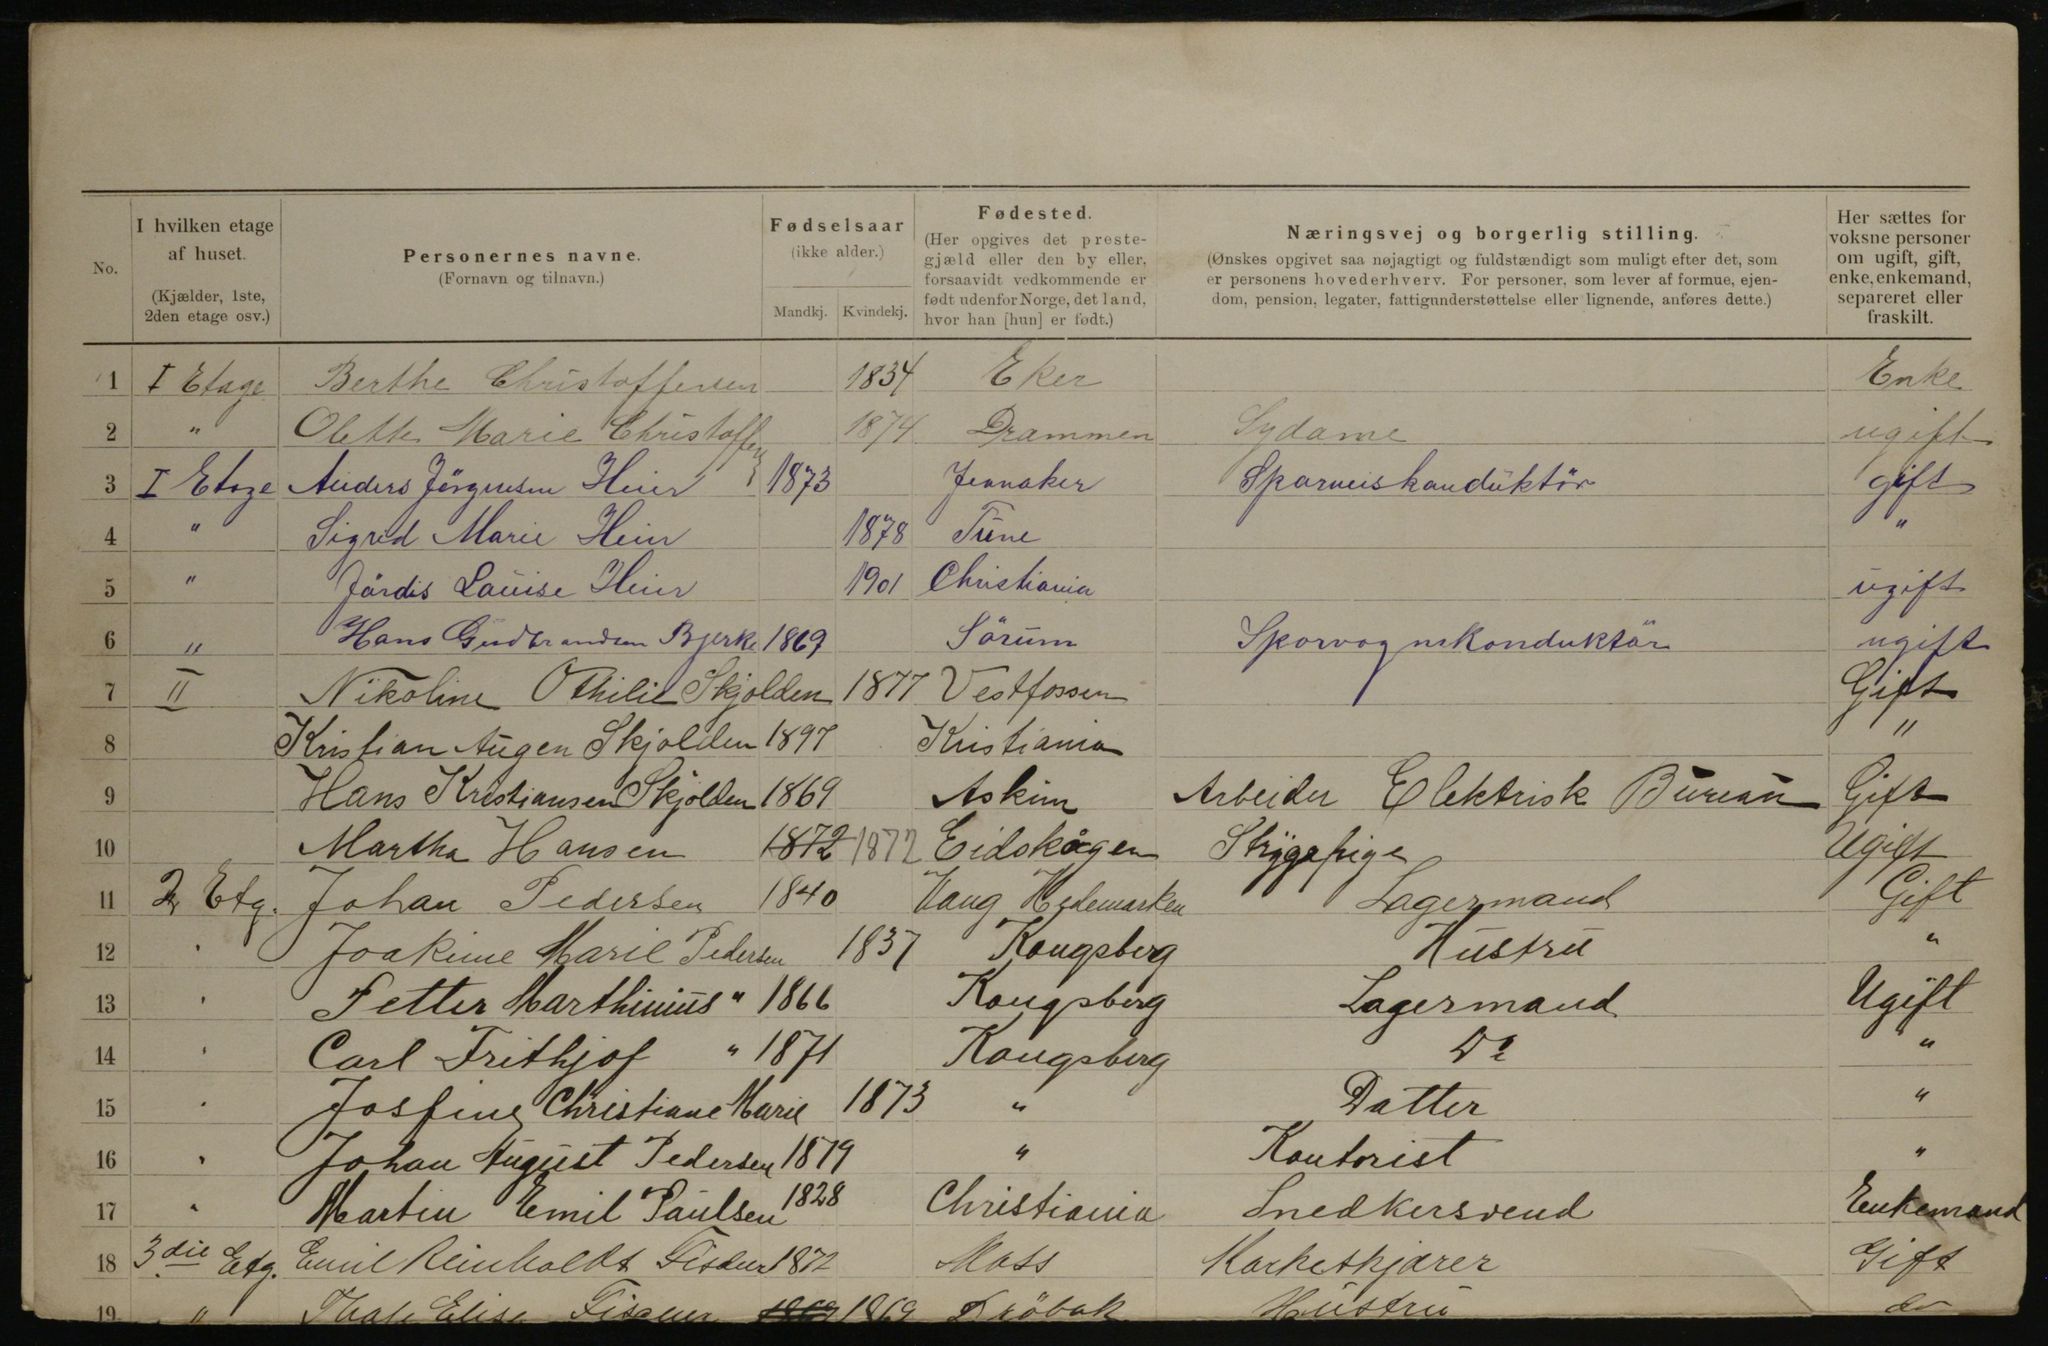 No.
I hvilken etage
af huset.
(Kjælder, 1ste,
2den etage osv.)
Personernes navne.
(Fornavn og tilnavn.)
Fødselsaar
(ikke alder.)
Mandkj. Kvindekj.
Fødested.
(Her opgives det preste-
gjæld eller den by eller,
forsaavidt vedkommende er
født udenfor Norge, det land,
hvor han [hun] er født.)
Næringsvej og borgerlig stilling.
(Ønskes opgivet saa nøjagtigt og fuldstændigt som muligt efter det, som
er personens hovederhverv. For personer, som lever af formue, ejen-
dom, pension, legater, fattigunderstøttelse eller lignende, anføres dette.)
Her sættes for
voksne personer
om ugift, gift,
enke, enkemand,
separeret eller
fraskilt.
1 I Etage Berthe Christoffersen 1834 Eker Enke
2 " Olette Marie Christoffersen 1874 Drammen Sydame ugift
3 I Etage Anders Jörgensen Heier 1873 Jevnaker Sporveiskonduktör gift
4 " Sigrid Marie Heier 1878 Tune "
5 " Jördis Louise Heier 1901 Christiania ugift
6 " Hans Gudbrandsen Bjerke 1869 Sörum Sporvognskonduktör ugift
7 II Nikoline Othilie Skjolden 1877 Vestfossen Gift
8 Kristian Augen Skjolden 1897 Kristiania "
9 Hans Kristiansen Skjolden 1869 Askim Arbeider Elektrisk Bureau Gift
10 Martha Hansen 1872 1872 Eidskogen Strygepige Ugift
11 2 Etg. Johan Pedersen 1840 Vang Hedemarken Lagermand Gift
12 " Joakime Marie Pedersen 1837 Kongsberg Hustru "
13 " Petter Marthinius " 1866 Kongsberg Lagermand Ugift
14 " Carl Frithjof " 1871 Kongsberg Do "
15 " Josfine Christiane Marie 1873 " Datter "
16 " Johan August Pedersen 1879 " Kontorist "
17 " Martin Emil Paulsen 1828 Christiania Snedkersvend Enkemand
18 3die Etg. Emil Reinholdt Fischer 1872 Moss Gift
19 " Elise 1869 1869 Dröbak Hustru do